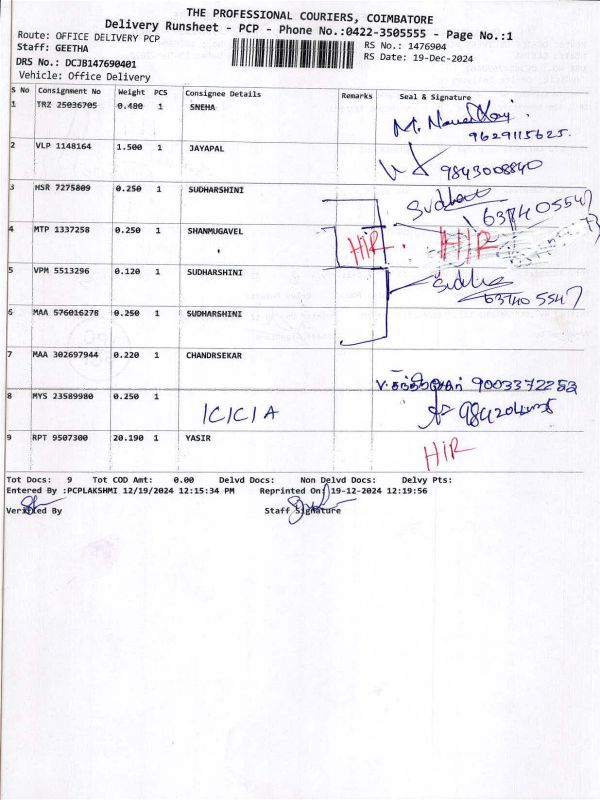 THE PROFESSIONAL COURIERS, COIMBATORE
Delivery Runsheet - PCP - Phone No.:0422-3505555 - Page No.:1
Route: OFFICE DELIVERY PCP
RS No.: 1476904
Staff: GEETHA
RS Date: 19-Dec-2024
DRS No.: DCJB147690401
Vehicle: Office Delivery
S No Consignment No Weight PCS Consignee Details Remarks Seal & Signature
1 TRZ 25036705 0.480 1 SNEHA
9629115625.
2 VLP 1148164 1.500 1 JAYAPAL
9843008840
3 HSR 7275809 0.250 1 SUDHARSHINI
4 MTP 1337258 0.250 1 SHANMUGAVEL HIR. HIR
5 VPM 5513296 0.120 1 SUDHARSHINI
6 MAA 576016278 0.250 1 SUDHARSHINI
7 MAA 302697944 0.220 1 CHANDRSEKAR
9003372252
8 MYS 23589980 0.250 1 ICICIA
9 RPT 9507300 20.190 1 YASIR HIR
Tot Docs: 9 Tot COD Amt: 0.00 Delvd Docs: Non Delvd Docs: Delvy Pts:
Entered By :PCPLAKSHMI 12/19/2024 12:15:34 PM Reprinted On: 19-12-2024 12:19:56
Verified By Staff Signature